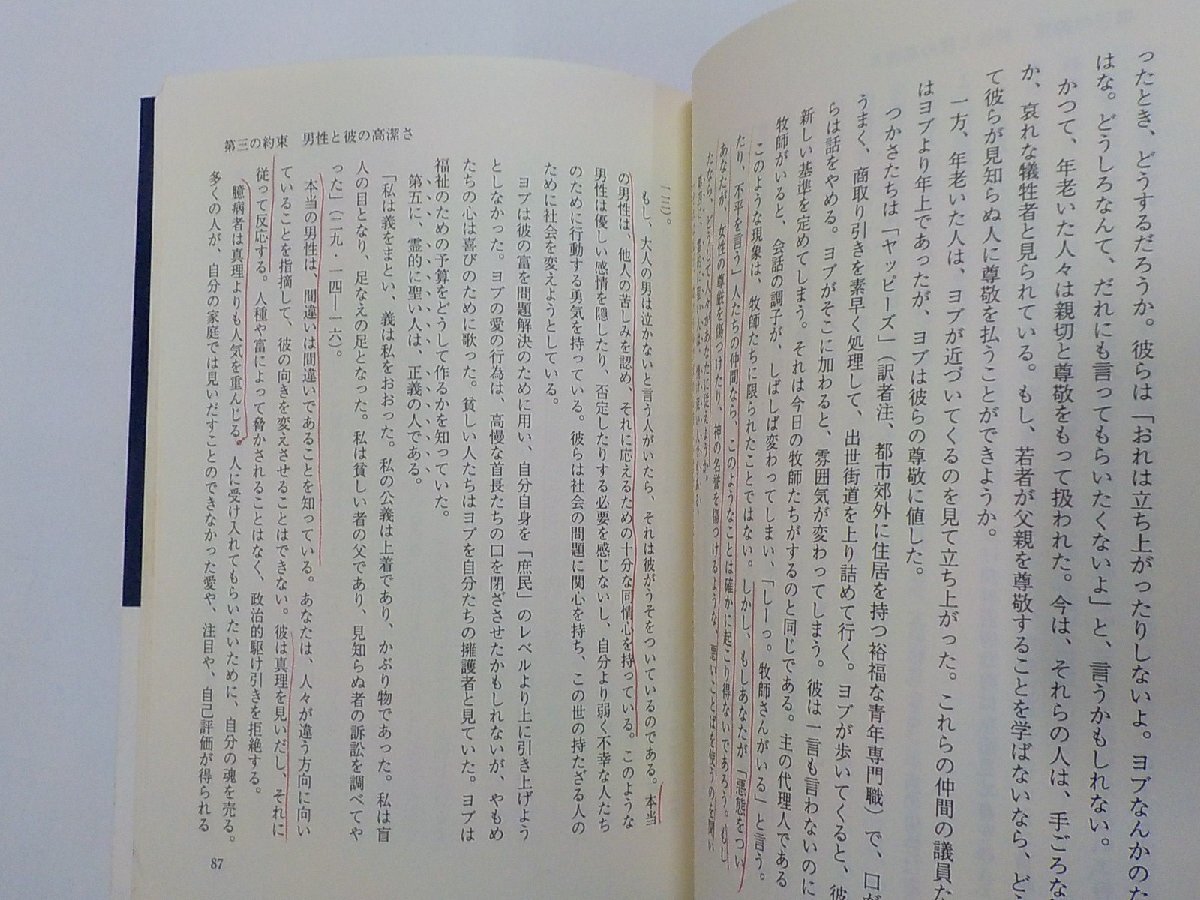 ったとき、どうするだろうか。彼らは「おれは立ち上がったりしないよ。ヨブなんかのた
はな。どうしろなんて、だれにも言ってもらいたくないよ」と、言うかもしれない。
かつて、年老いた人々は親切と尊敬をもって扱われた。今は、それらの人は、手ごろな
か、哀れな犠牲者と見られている。もし、若者が父親を尊敬することを学ばないなら、ど
て彼らが見知らぬ人に尊敬を払うことができようか。
一方、年老いた人は、ヨブが近づいてくるのを見て立ち上がった。これらの仲間の議員た
はヨブより年上であったが、ヨブは彼らの尊敬に値した。
つかさたちは「ヤッピーズ」(訳者注、都市郊外に住居を持つ裕福な青年専門職)で、口が
うまく、商取り引きを素早く処理して、出世街道を上り詰めて行く。ヨブが歩いてくると、彼
らは話をやめる。ヨブがそこに加わると、雰囲気が変わってしまう。彼は一言も言わないのに
新しい基準を定めてしまう。それは今日の牧師たちがするのと同じである。主の代理人である
牧師がいると、会話の調子が、しばしば変わってしまい、「しーっ。牧師さんがいる」と言う。
このような現象は、牧師たちに限られたことではない。しかし、もしあなたが「悪態をつい
たり、不平を言う」人たちの仲間なら、このようなことは確かに起こり得ないであろう。もし
あなたが、女性の尊厳を傷つけたり、神の名誉を傷つけるような、悪いことばを使うのを聞い
一三)。
もし、大人の男は泣かないと言う人がいたら、それは彼がうそをついているのである。本当
の男性は、他人の苦しみを認め、それに応えるための十分な同情心を持っている。このような
男性は優しい感情を隠したり、否定したりする必要を感じないし、自分より弱く不幸な人たち
のために行動する勇気を持っている。彼らは社会の問題に関心を持ち、この世の持たざる人の
ために社会を変えようとしている。
ヨブは彼の富を問題解決のために用い、自分自身を「庶民」のレベルより上に引き上げよう
としなかった。ヨブの愛の行為は、高慢な首長たちの口を閉ざさせたかもしれないが、やもめ
たちの心は喜びのために歌った。貧しい人たちはヨブを自分たちの擁護者と見ていた。ヨブは
福祉のための予算をどうして作るかを知っていた。
第五に、霊的に聖い人は、正義の人である。
「私は義をまとい、義は私をおおった。私の公義は上着であり、かぶり物であった。私は盲
人の目となり、足なえの足となった。私は貧しい者の父であり、見知らぬ者の訴訟を調べてや
った」(二九・一四―一六)。
本当の男性は、間違いは間違いであることを知っている。あなたは、人々が違う方向に向い
ていることを指摘して、彼の向きを変えさせることはできない。彼は真理を見いだし、それに
従って反応する。人種や富によって脅かされることはなく、政治的駆け引きを拒絶する。
臆病者は真理よりも人気を重んじる。人に受け入れてもらいたいために、自分の魂を売る。
多くの人が、自分の家庭では見いだすことのできなかった愛や、注目や、自己評価が得られる
第三の約束 男性と彼の高潔さ
87